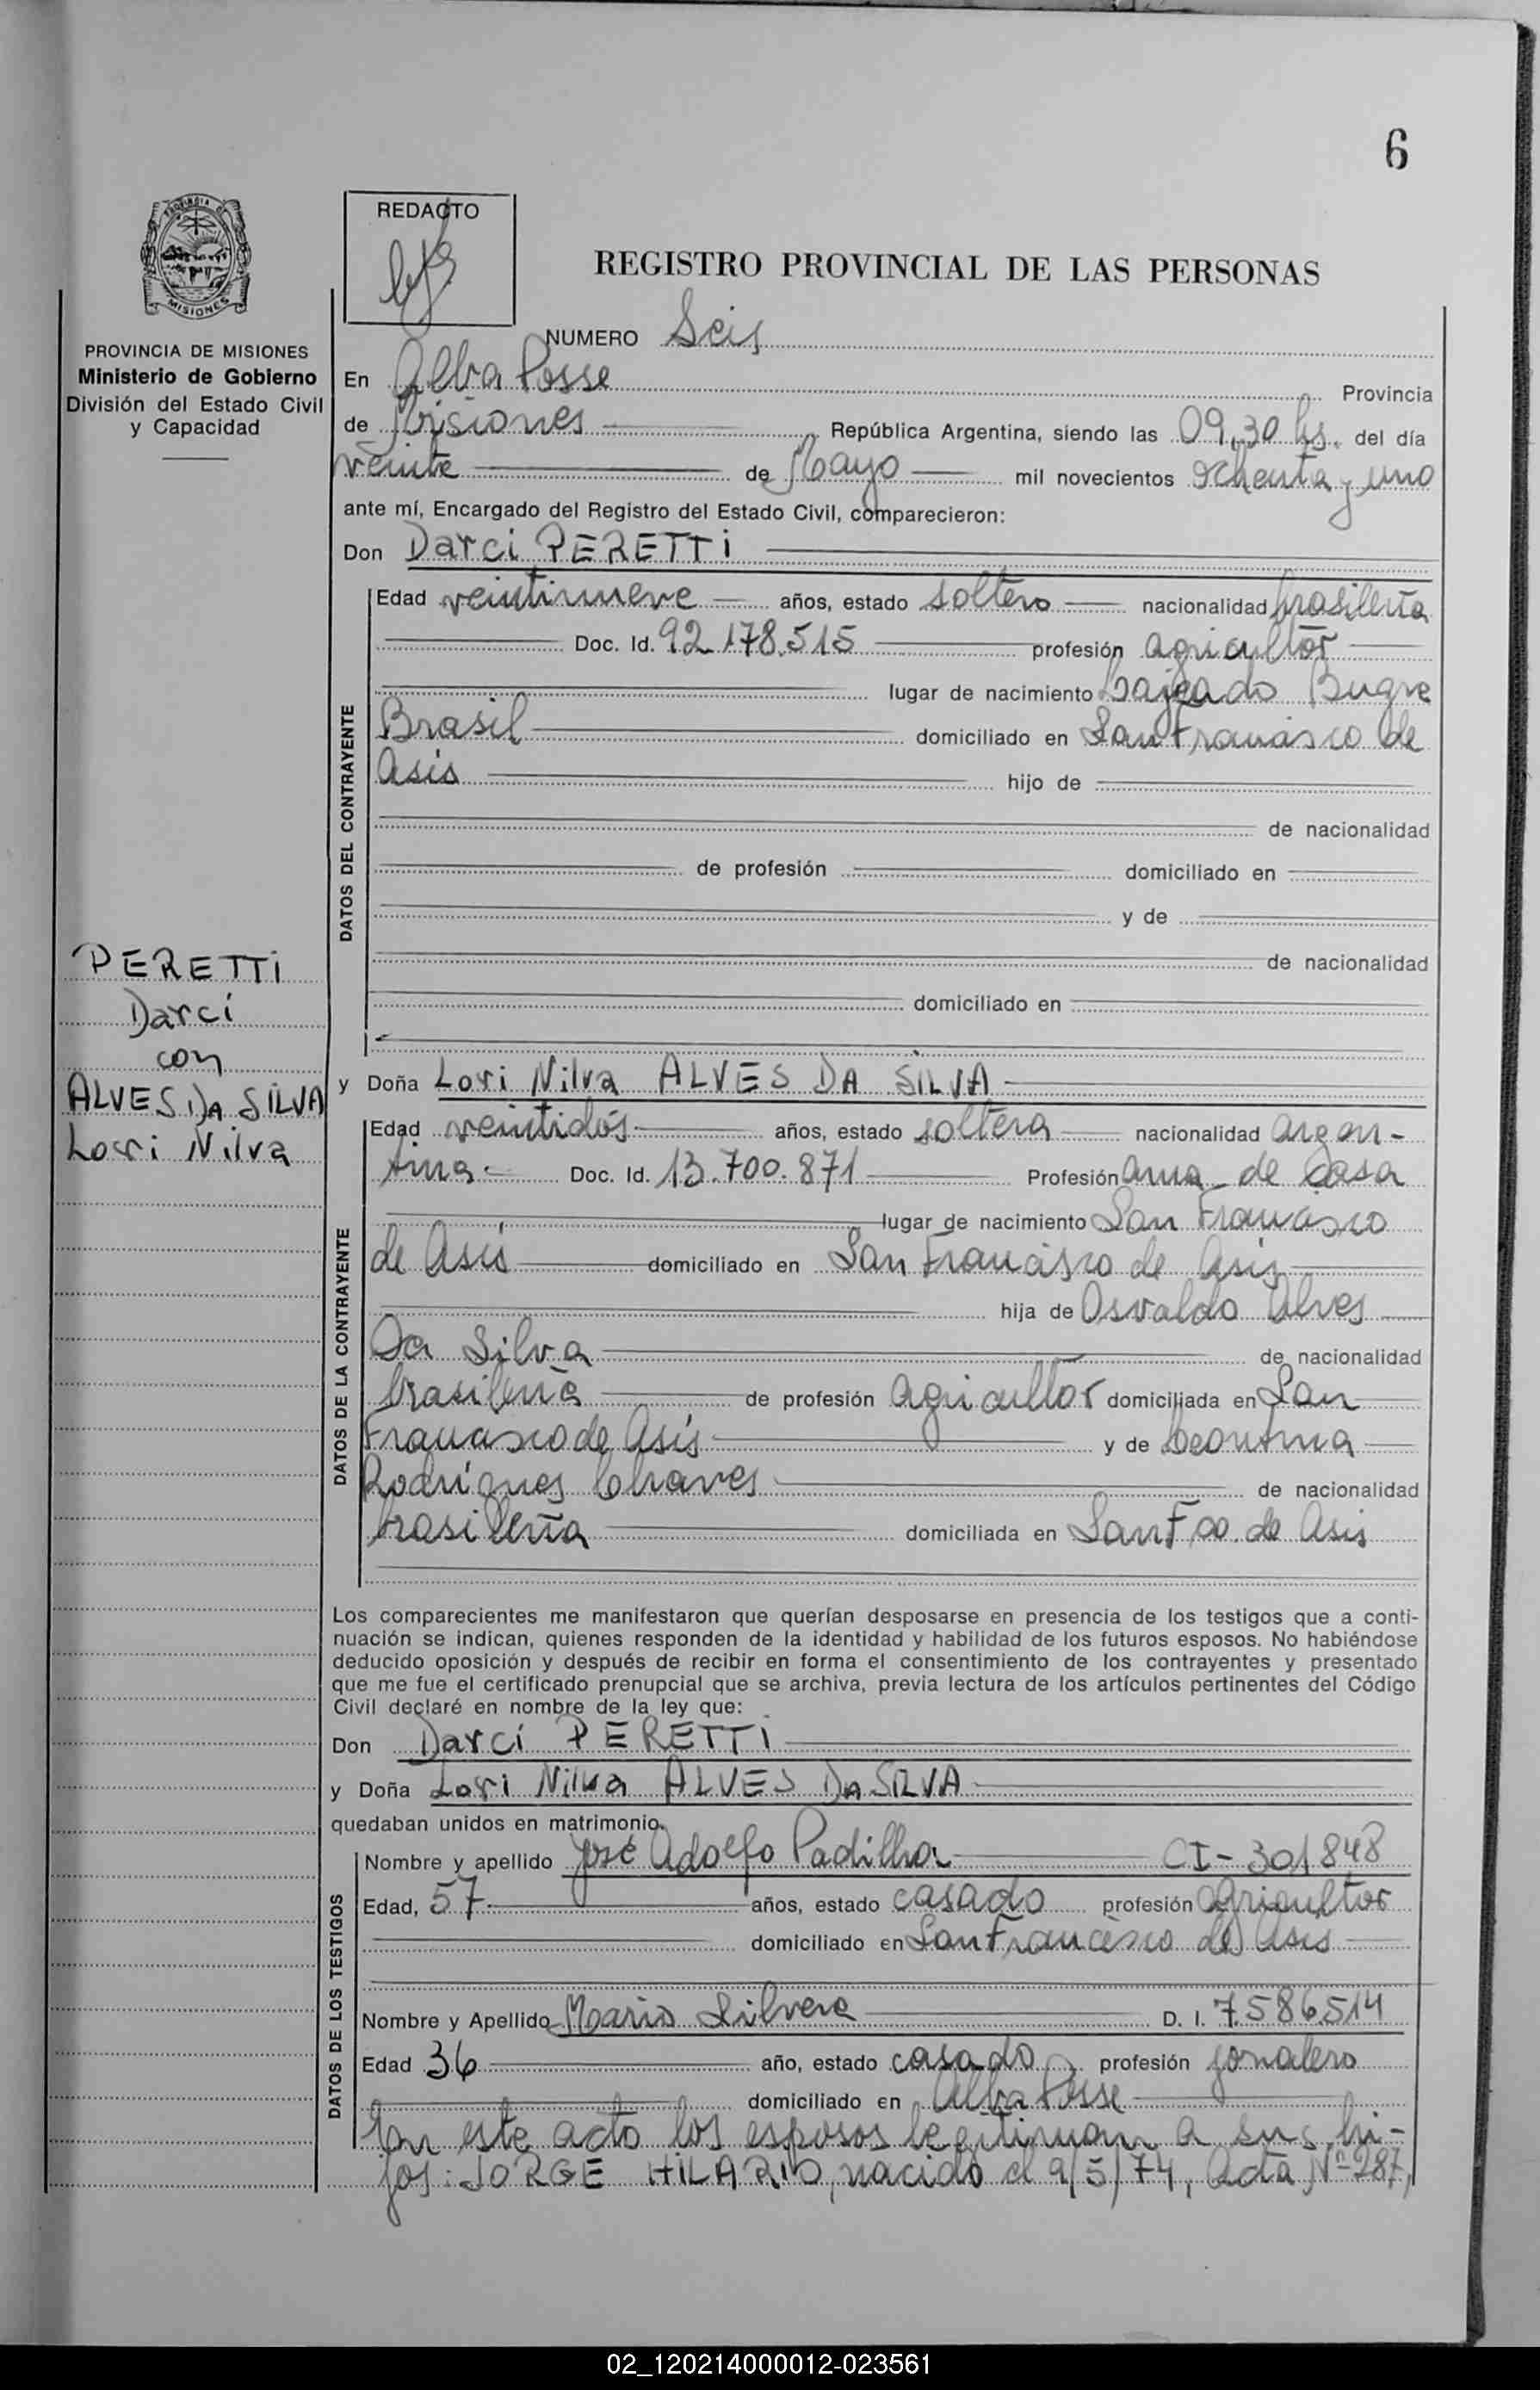 6
REDACTO
PROVINCIA DE
MISIONES
REGISTRO PROVINCIAL DE LAS PERSONAS
PROVINCIA DE MISIONES
Ministerio de Gobierno
División del Estado Civil
y Capacidad
NUMERO Seis
En Alba Posse Provincia
de Misiones República Argentina, siendo las 09,30 hs. del día
veinte de Mayo mil novecientos ochenta y uno
ante mí, Encargado del Registro del Estado Civil, comparecieron:
Don Darci PERETTI
DATOS DEL CONTRAYENTE
Edad veintinueve años, estado soltero nacionalidad brasileña
Doc. Id. 92.178.515 profesión agricultor
lugar de nacimiento Lajeado Bugre
Brasil domiciliado en San Francisco de
Asis hijo de
de nacionalidad
de profesión domiciliado en
y de
de nacionalidad
domiciliado en
PERETTI
Darci
con
ALVES DA SILVA
Lori Nilva
y Doña Lori Nilva ALVES DA SILVA
DATOS DE LA CONTRAYENTE
Edad veintidós años, estado soltera nacionalidad argen-
tina Doc. Id. 13.700.871 Profesión ama de casa
lugar de nacimiento San Francisco
de Asis domiciliado en San Francisco de Asis
hija de Osvaldo Alves
Da Silva de nacionalidad
brasileña de profesión agricultor domiciliada en San
Francisco de Asís y de Leontina
Rodrigues Chaves de nacionalidad
brasileña domiciliada en San Fco. de Asis
Los comparecientes me manifestaron que querían desposarse en presencia de los testigos que a conti-
nuación se indican, quienes responden de la identidad y habilidad de los futuros esposos. No habiéndose
deducido oposición y después de recibir en forma el consentimiento de los contrayentes y presentado
que me fue el certificado prenupcial que se archiva, previa lectura de los artículos pertinentes del Código
Civil declaré en nombre de la ley que:
Don Darcí PERETTI
y Doña Lori Nilva ALVES DA SILVA
quedaban unidos en matrimonio.
DATOS DE LOS TESTIGOS
Nombre y apellido José Adolfo Padilha CI- 301848
Edad, 57 años, estado casado profesión agricultor
domiciliado en San Francisco de Asis
Nombre y Apellido Mario Silvera D. I. 7.586.514
Edad 36 año, estado casado profesión jornalero
domiciliado en Alba Posse
En este acto los esposos legitiman a sus hi-
jos: JORGE HILARIO, nacido el 9/5/74, Acta Nº 287,
02_120214000012-023561